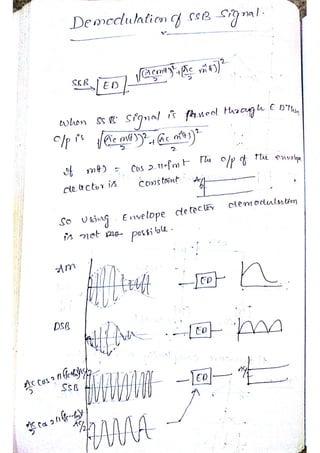 Demodulation of SSB Signal.
SSB ED √(Ac/2 m(t))² + (Ac/2 m̂(t))²
When SSB Signal is Passed through ED Then
O/p is √(Ac/2 m(t))² + (Ac/2 m̂(t))²
if m(t) = Cos 2πfmt The o/p of the envelope
detector is Constant Ac/2
So Using Envelope detector demodulation
is not possible.
AM ED
DSB ED
Ac/2 Cos 2π(fc+fm)t Ac/2
SSB ED Ac/2
Ac/2 Cos 2π(fc-fm)t Ac/2